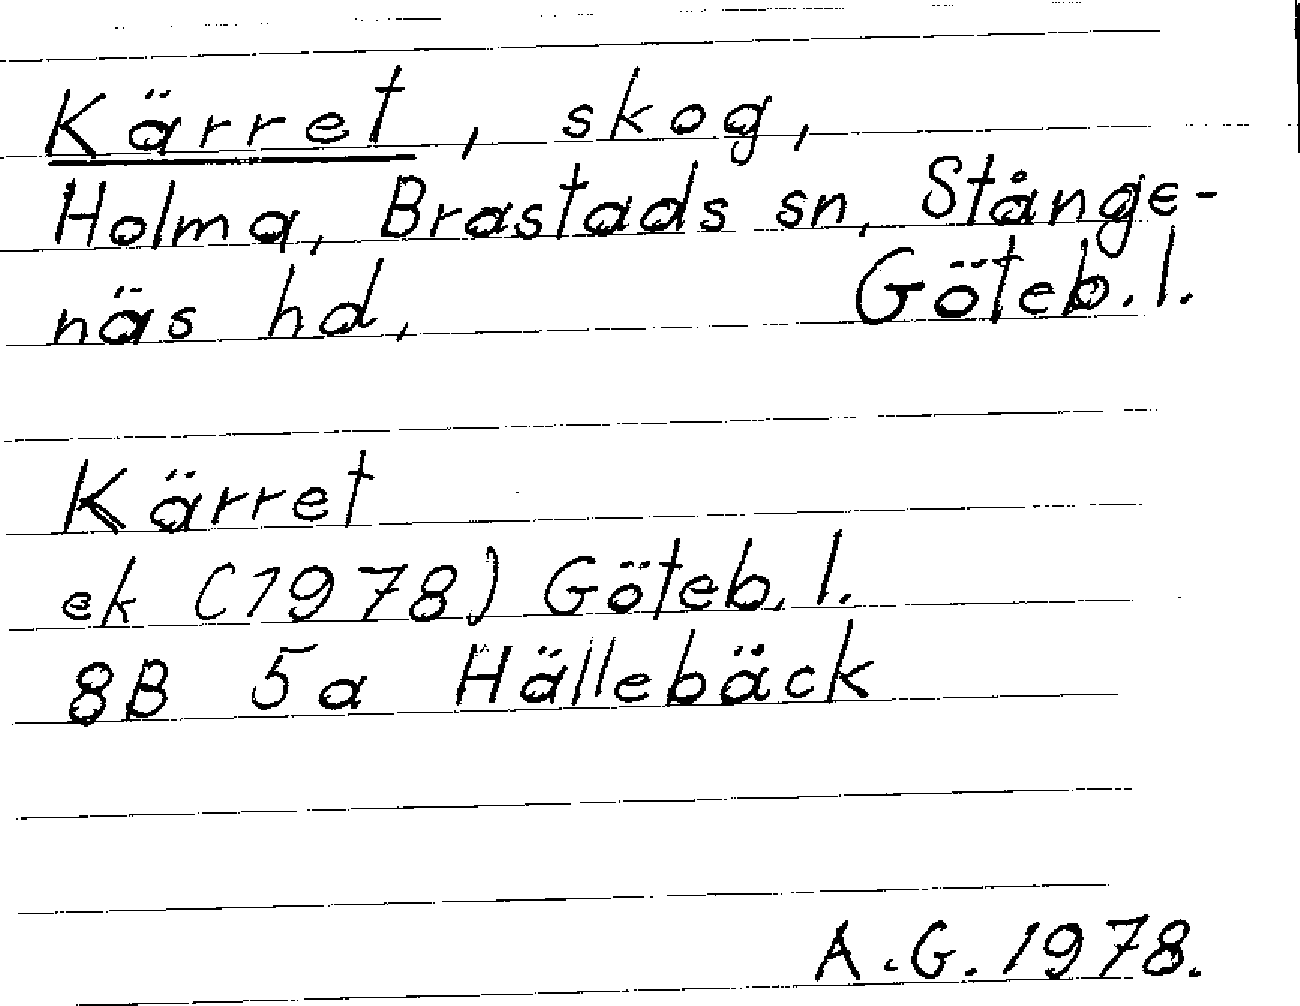 Kärret, skog,
Holma, Brastads sn, Stånge-
näs hd, Göteb. l.
Kärret
ek (1978) Göteb. l.
8B 5a Hällebäck
A.G. 1978.